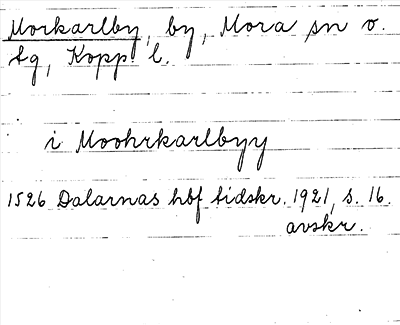 Morkarlby, by, Mora sn o.
tg, Kopp l.
i Moohrkarlbyy
1526 Dalarnas hbf tidskr. 1921, s. 16.
avskr.